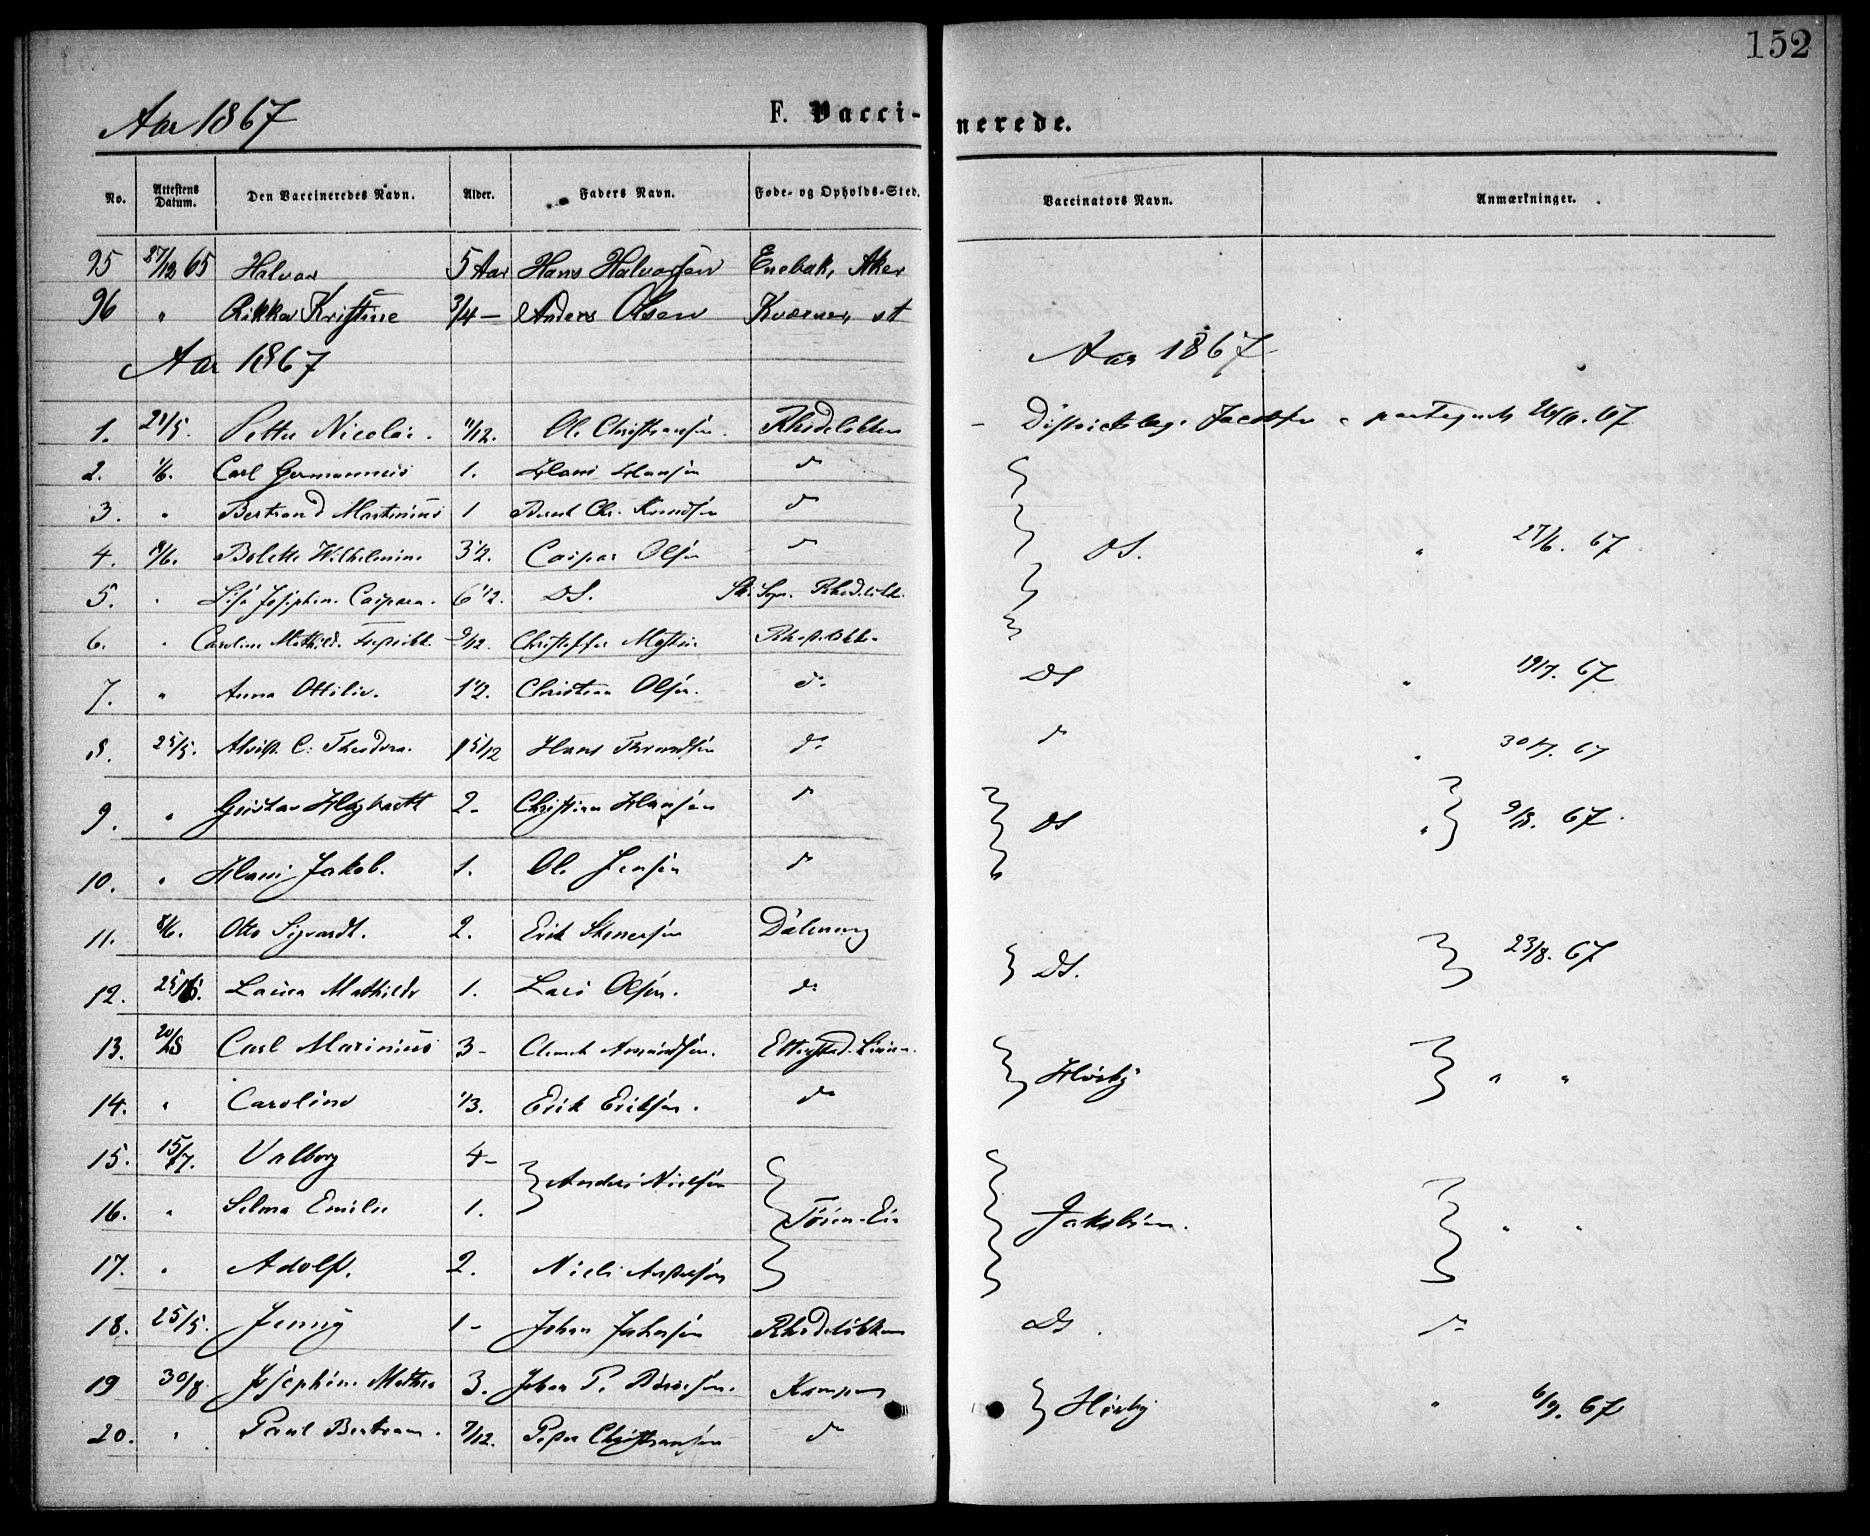 152
Aar 1867 F. Vacci-nerede.
No. Attestens Datum. Den Vaccineredes Navn. Alder. Faders Navn. Føde- og Opholds-Sted. Vaccinators Navn. Anmærkninger.
95 27/12 65 Halvor 5 Aar Hans Halvorsen Enebak, Aker
96 " Rikka Kristine 3/4 – Anders Olsen Kværner, st
Aar 1867 Aar 1867
1. 21/5. Petter Nicolai. 11/12. Ole Christiansen. Rhodeløkken – Districtslæg. Jacobsen 67
2. 1/6. Carl Germannus 1. Hans Hansen do
3. " Bertrand Martinius 1 Bernt Chr. Knudsen do
4. 8/6. Bolette Wilhelmine 3 1/2. Caspar Olsen do DS. " 27/6. 67
5. " Josephin. Caspara. 6 1/2. DS.
6. " Caroline Mathild. 9/12. Christoffer
7. " Anna Ottilie. 1 1/2. Christian Olsen. do DS " 19/7. 67
8. 25/5. C. Theodora. 1 5/12 Hans do do " 30/7. 67
9. " Gustav Hagbarth 2 – Christian Hansen do DS " 9/8. 67.
10. " Hans Jakob. 1. Ole Jensen do
11. 8/6. Otto Sigvardt. 2. Erik Stenersen Dæleneng DS. 23/8. 67
12. 25/6. Laura Mathilde 1. Lars Olsen. do
13. 20/8 Carl Marinius 3 – Amundsen. Høiby " "
14. " Caroline 1/3. Erik Eriksen. do
15. 15/7. Valborg 4 – Anders Nielsen
16. " Selma Emilie 1. Jakobsen. " "
17. " Adolf. 2. Niels Andersen
18. 25/5. Jenny 1 – Johan Rhodeløkken DS. do
19 30/8. Josephine Mathea 3. Johan P. Kampen Høiby " 6/9. 67
20. " Paul Bertram. 7/12. Peder Christiansen do